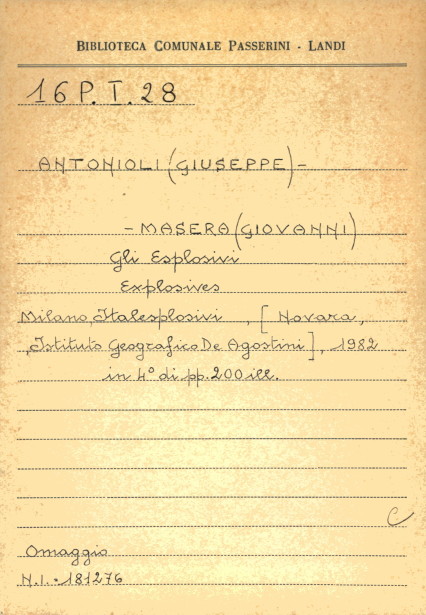 BIBLIOTECA COMUNALE PASSERINI - LANDI
16 P. I. 28
ANTONIOLI (GIUSEPPE) -
- MASERA (GIOVANNI)
Gli Esplosivi
Explosives
Milano, Italesplosivi , [ Novara,
, Istituto Geografico De Agostini ] , 1982
in 4° di pp. 200 ill.
C
Omaggio
N.I. - 181276